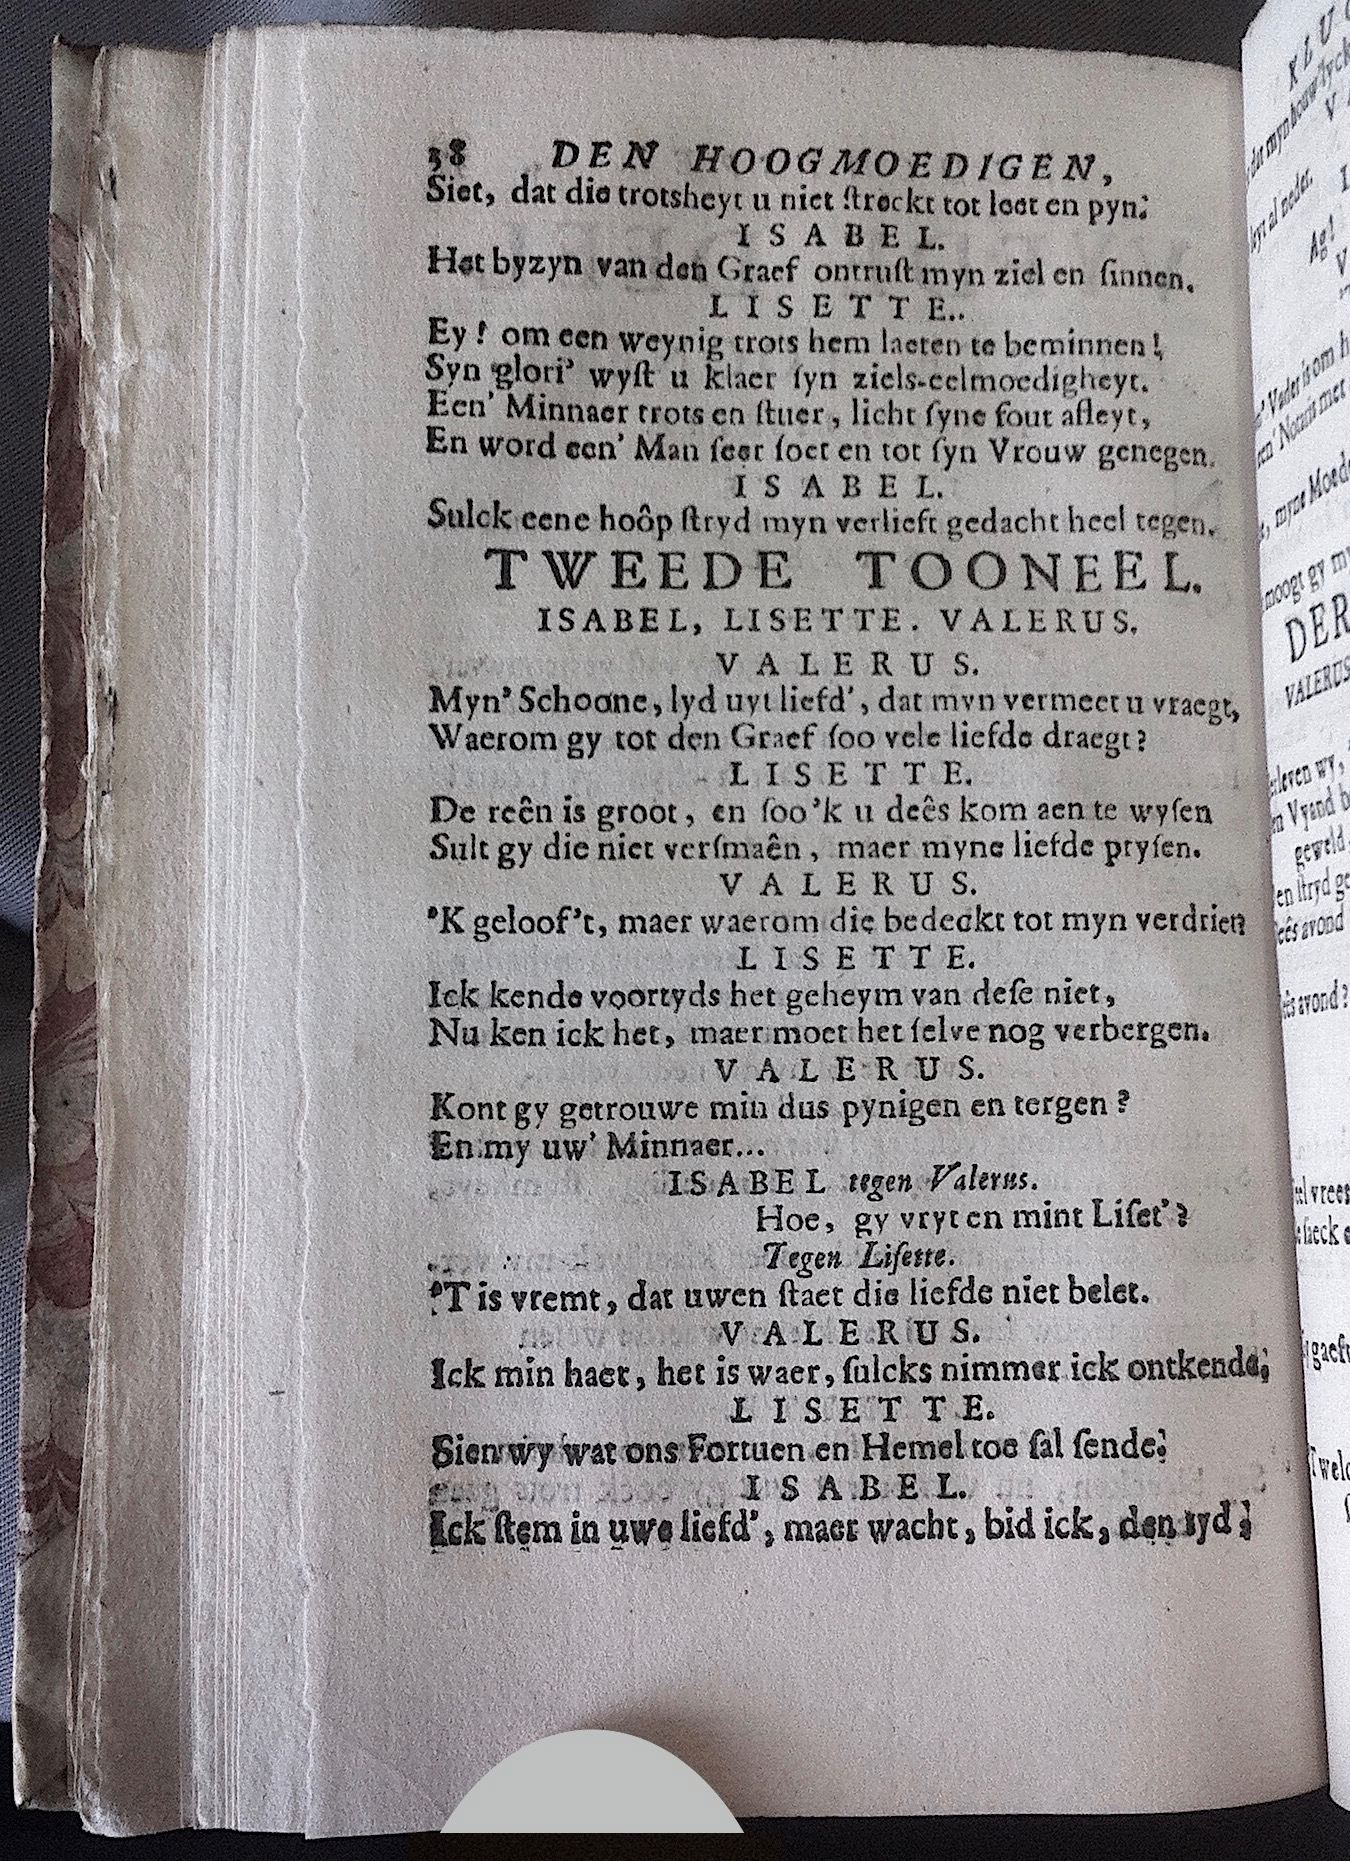 38 DEN HOOGMOEDIGEN,
Siet, dat die trotsheyt u niet ſtreckt tot leet en pyn.
ISABEL.
Het byzyn van den Graef ontruſt myn ziel en ſinnen.
LISETTE..
Ey! om een weynig trots hem laeten te beminnen!
Syn glori' wyſt u klaer ſyn ziels-eelmoedigheyt.
Een' Minnaer trots en ſtuer, licht ſyne fout afleyt,
En word een' Man ſeer ſoet en tot ſyn Vrouw genegen.
ISABEL.
Sulck eene hoôp ſtryd myn verlieft gedacht heel tegen.
TWEEDE TOONEEL.
ISABEL, LISETTE. VALERUS.
VALERUS.
Myn' Schoone, lyd uyt liefd', dat myn vermeet u vraegt,
Waerom gy tot den Graef ſoo vele liefde draegt?
LISETTE.
De reên is groot, en ſoo'k u deês kom aen te wyſen
Sult gy die niet verſmaên, maer myne liefde pryſen.
VALERUS.
'K geloof't, maer waerom die bedeckt tot myn verdriet?
LISETTE.
Ick kende voortyds het geheym van deſe niet,
Nu ken ick het, maer moet het ſelve nog verbergen.
VALERUS.
Kont gy getrouwe min dus pynigen en tergen?
En my uw' Minnaer...
ISABEL tegen Valerus.
Hoe, gy vryt en mint Liſet'?
Tegen Liſette.
'T is vremt, dat uwen ſtaet die liefde niet belet.
VALERUS.
Ick min haer, het is waer, ſulcks nimmer ick ontkende;
LISETTE.
Sien wy wat ons Fortuen en Hemel toe ſal ſende.
ISABEL.
Ick ſtem in uwe liefd', maer wacht, bid ick, den tyd;